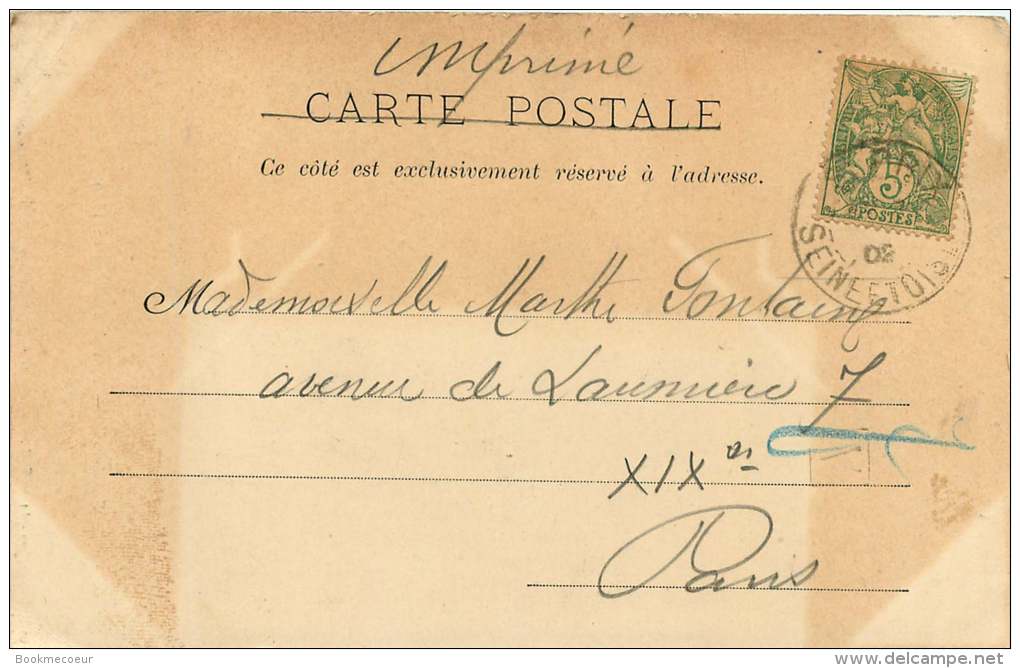 imprimé
CARTE POSTALE
Ce côté est exclusivement réservé à l'adresse.
5c
POSTES
02
SEINE ET OISE
Mademoiselle Marthe Fontaine
avenue de Laumière 7
XIX
Paris
Bookmecoeur
www.delcampe.net